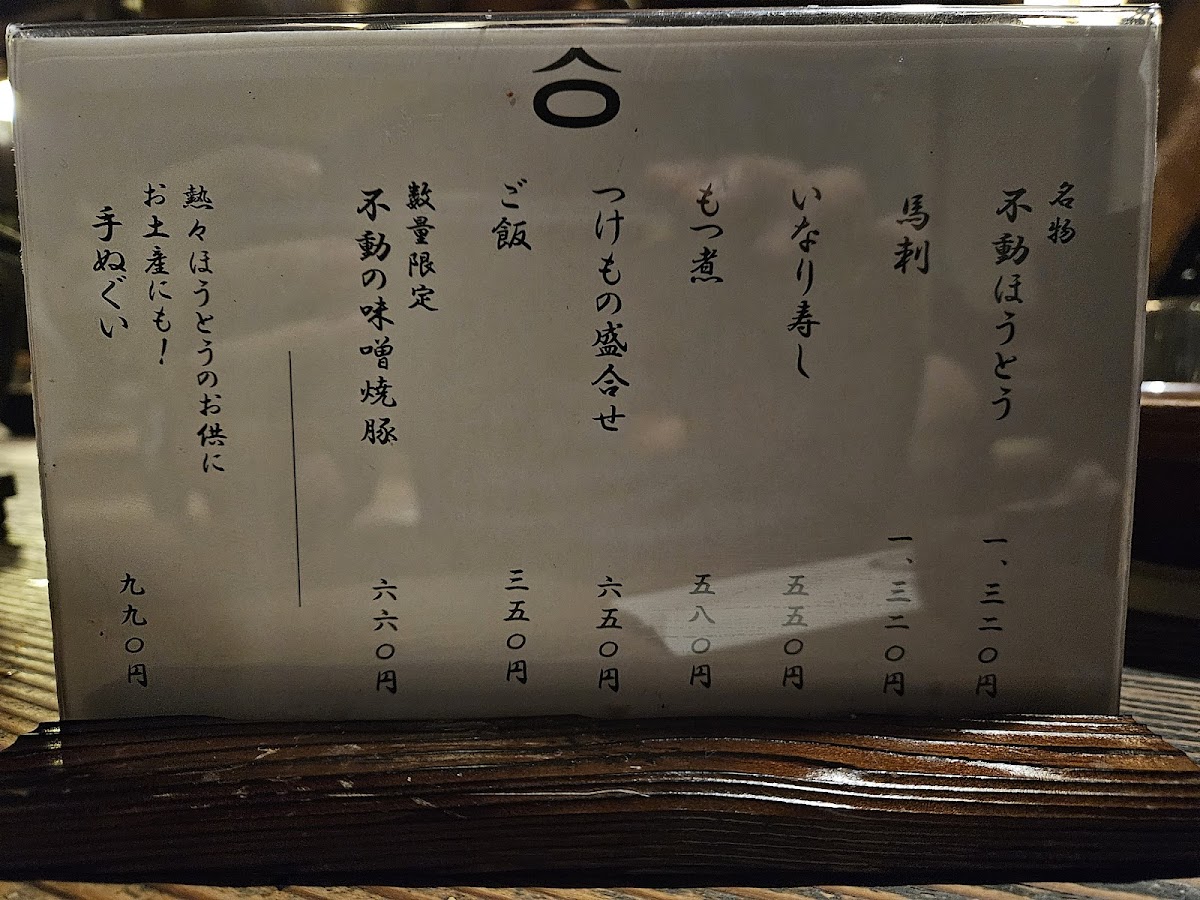 名物
不動ほうとう 一、三二〇円
馬刺 一、三二〇円
いなり寿し 五五〇円
もつ煮 五八〇円
つけもの盛合せ 六五〇円
ご飯 三五〇円
数量限定
不動の味噌焼豚 六六〇円
熱々ほうとうのお供に
お土産にも！
手ぬぐい 九九〇円